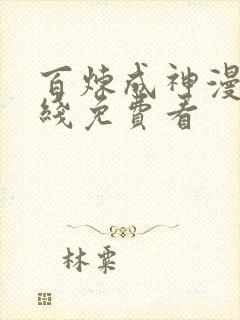 百炼成神漫
线免費看
林粟